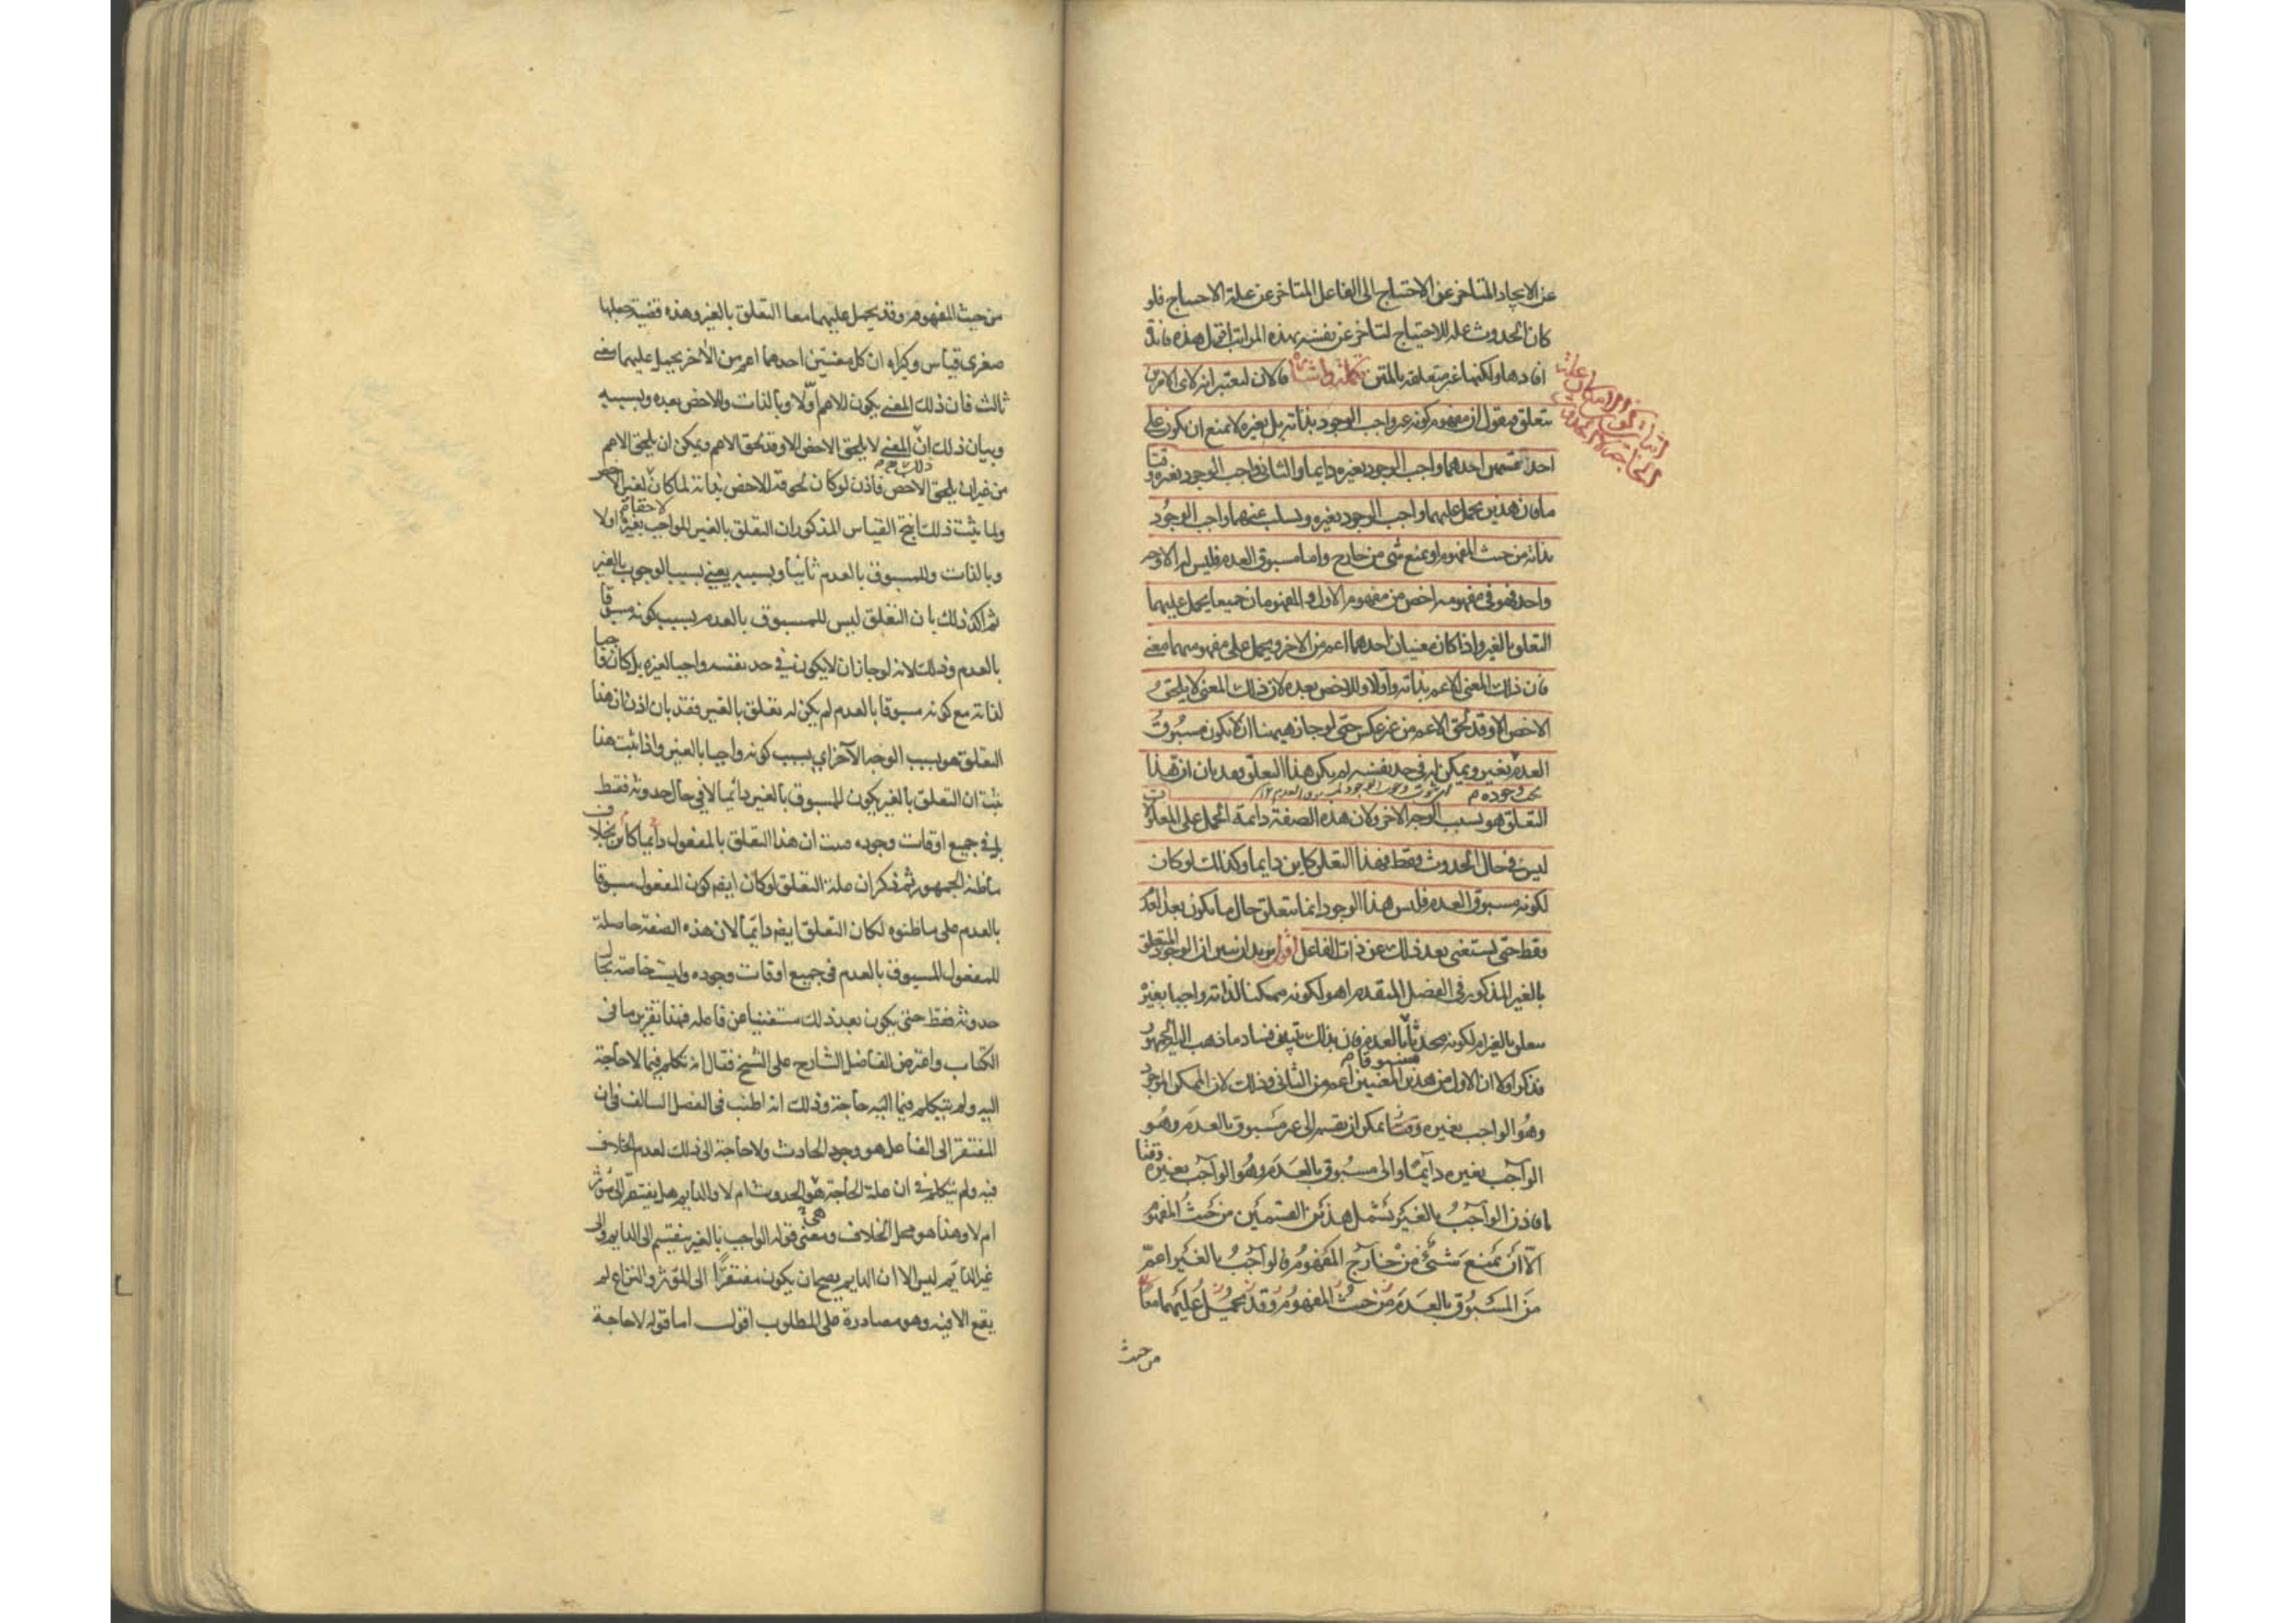 عن الايجاد المتاخر عن الاحتياج الى الفاعل المتاخر عن علة الاحتياج فلو
كان الحدوث علة للاحتياج لتاخر عن نفسه بهذه المراتب فهذه فائدة
افادها ولكنها غير متعلقة بالمتن تكملة واشارة فالان لنعتبر انه لاى الامرين
يتعلق فنقول ان مفهوم كونه غير واجب الوجود بذاته بل بغيره لا يمنع ان يكون على
احد قسمين احدهما واجب الوجود بغيره دايما والثانى واجب الوجود بغيره وقتا
ما فان هذين يحمل عليهما واجب الوجود بغيره ويسلب عنهما واجب الوجود
بذاته من حيث المفهوم او يمنع شى من خارج واما مسبوق العدم فليس له الا وجه
واحد فهو فى مفهومه اخص من مفهوم الاول والمفهومان جميعا يحمل عليهما
التعلق بالغير واذا كان معنيان احدهما اعم من الاخر ويحمل على مفهوميهما معنى
فان ذلك المعنى للاعم بذاته واولا وللاخص بعده لان ذلك المعنى لا يلحق
الاخص الا وقد لحق الاعم من غير عكس حتى لو جاز ههنا ان لا يكون مسبوق
العدم بغيره ويمكن له فى حد نفسه لم يكن هذا التعلق فقد بان ان هذا
يجب وجوده
التعلق هو بسبب الوجه الاخر ولان هذه الصفة دائمة الحمل على المعلولات
ليس فى حال الحدوث فقط فهذا التعلق كاين دايما وكذلك لو كان
لكونه مسبوق العدم فليس هذا الوجود انما يتعلق حال ما يكون بعد العدم
فقط حتى يستغنى بعد ذلك عن ذات الفاعل اقول يريد ان يبين ان الوجود المتعلق
بالغير المذكور فى الفصل المتقدم اهو لكونه ممكنا لذاته واجبا بغيره
متعلق بالغير ام لكونه محدثا بالعدم فان بذلك يتبين فساد ما ذهب اليه الجمهور
مسبوقا
فذكر اولا ان الاول من هذين المعنيين اعم من الثانى وذلك لان الممكن الموجود
وهو الواجب بغيره وقتا يمكن ان يقسم الى غير مسبوق بالعدم وهو
الواجب بغيره دآيما والى مسبوق بالعدم وهو الواجب بغيره وقتا
فاذن الواجب بالغير يشمل هذين القسمين من حيث المفهوم
الا ان يمنع شئ من خارج المفهوم فالواجب بالغير اعم
من المسبوق بالعدم من حيث المفهوم وقد يحمل عليهما معا
من حيث
من حيث المفهوم وقد يحمل عليهما معا التعلق بالغير وهذه قضية جعلها
صغرى قياس وكبراه ان كل معنيين احدهما اعم من الاخر يحمل عليهما معنى
ثالث فان ذلك المعنى يكون للاعم اولا وبالذات وللاخص بعده وبسببه
وبيان ذلك ان المعنى لا يلحق الاخص الا وقد لحق الاعم ويمكن ان يلحق الاعم
من غير ان يلحق الاخص فاذن لو كان لحوقه للاخص بذاته لما كان لغير الاخص
لاحقا
ولما يثبت ذلك انتج القياس المذكور ان التعلق بالغير للواجب بغيره اولا
وبالذات وللمسبوق بالعدم ثانيا وبسببه يعنى بسبب الوجوب بالغير
ثم اكد ذلك بان التعلق ليس للمسبوق بالعدم بسبب كونه مسبوقا
بالعدم وذلك لانه لو جاز ان لا يكون فى حد نفسه واجبا لغيره بل كان واجبا
لذاته مع كونه مسبوقا بالعدم لم يكن له تعلق بالغير فقد بان اذن ان هذا
التعلق هو بسبب الوجه الآخر اى بسبب كونه واجبا بالغير واذا ثبت هذا
ثبت ان التعلق بالغير يكون للمسبوق بالغير دائما لا فى حال حدوثه فقط
بل فى جميع اوقات وجوده فثبت ان هذا التعلق بالمفعول دائما كائن بخلاف
ما ظنه الجمهور ثم ذكر ان علة التعلق لو كان ايضا كون المفعول مسبوقا
بالعدم على ما ظنوه لكان التعلق ايضا دائما لان هذه الصفة حاصلة
للمفعول المسبوق بالعدم فى جميع اوقات وجوده وليست خاصة بحال
حدوثه فقط حتى يكون بعد ذلك مستغنيا عن فاعله فهذا تقرير ما فى
الكتاب واعترض الفاضل الشارح على الشيخ فقال انه تكلم فيما لا حاجة
اليه ولم يتكلم فيما اليه حاجة وذلك انه اطنب فى الفصل السالف فى ان
المفتقر الى الفاعل هو وجود الحادث ولا حاجة الى ذلك لعدم الخلاف
فيه ولم يتكلم فى ان علة الحاجة هى الحدوث ام لا والدايم هل يفتقر الى مؤثر
ام لا وهذا هو محل الخلاف ومعنى قوله الواجب بالغير ينقسم الى الدايم والى
غير الدائم ليس الا ان الدايم يصح ان يكون مفتقرا الى المؤثر والنزاع لم
يقع الا فيه وهو مصادرة على المطلوب اقول اما قوله لا حاجة